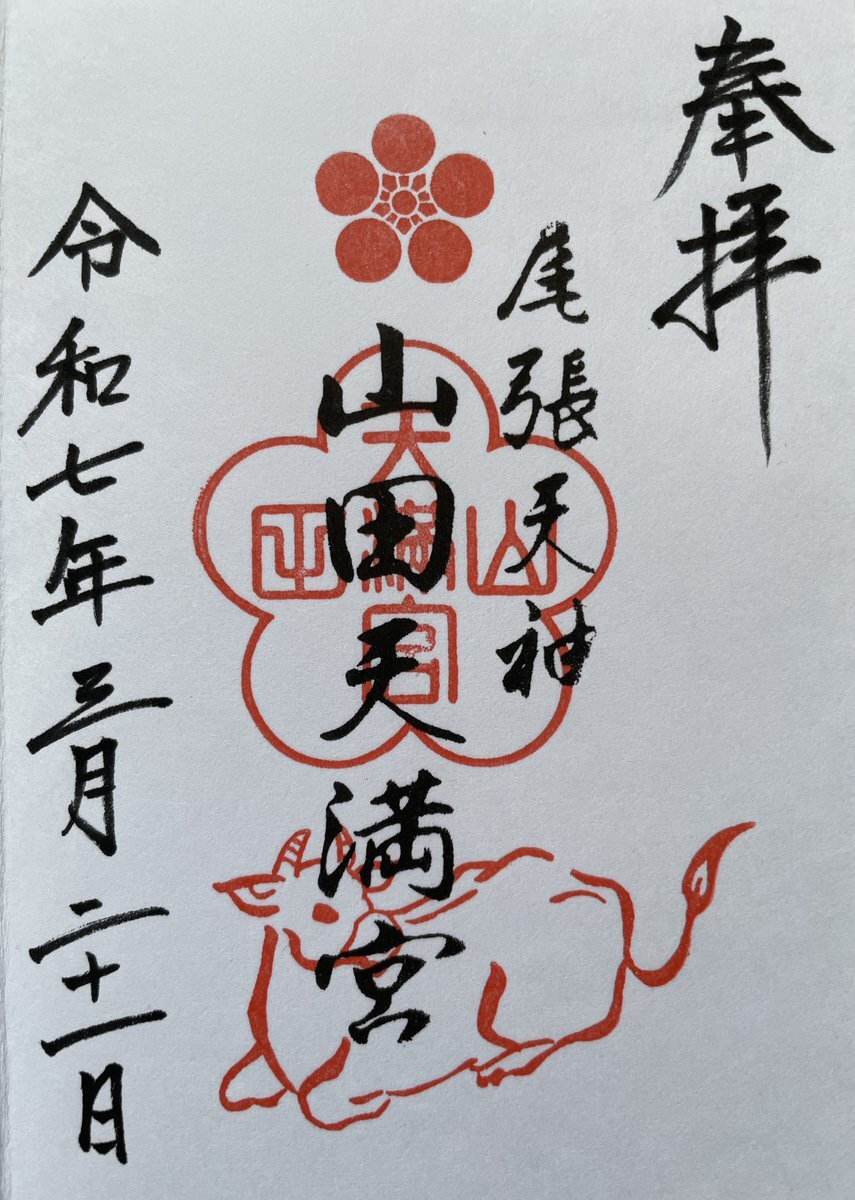 奉拝
尾張天神
山田天満宮
山田天満宮
令和七年三月二十一日